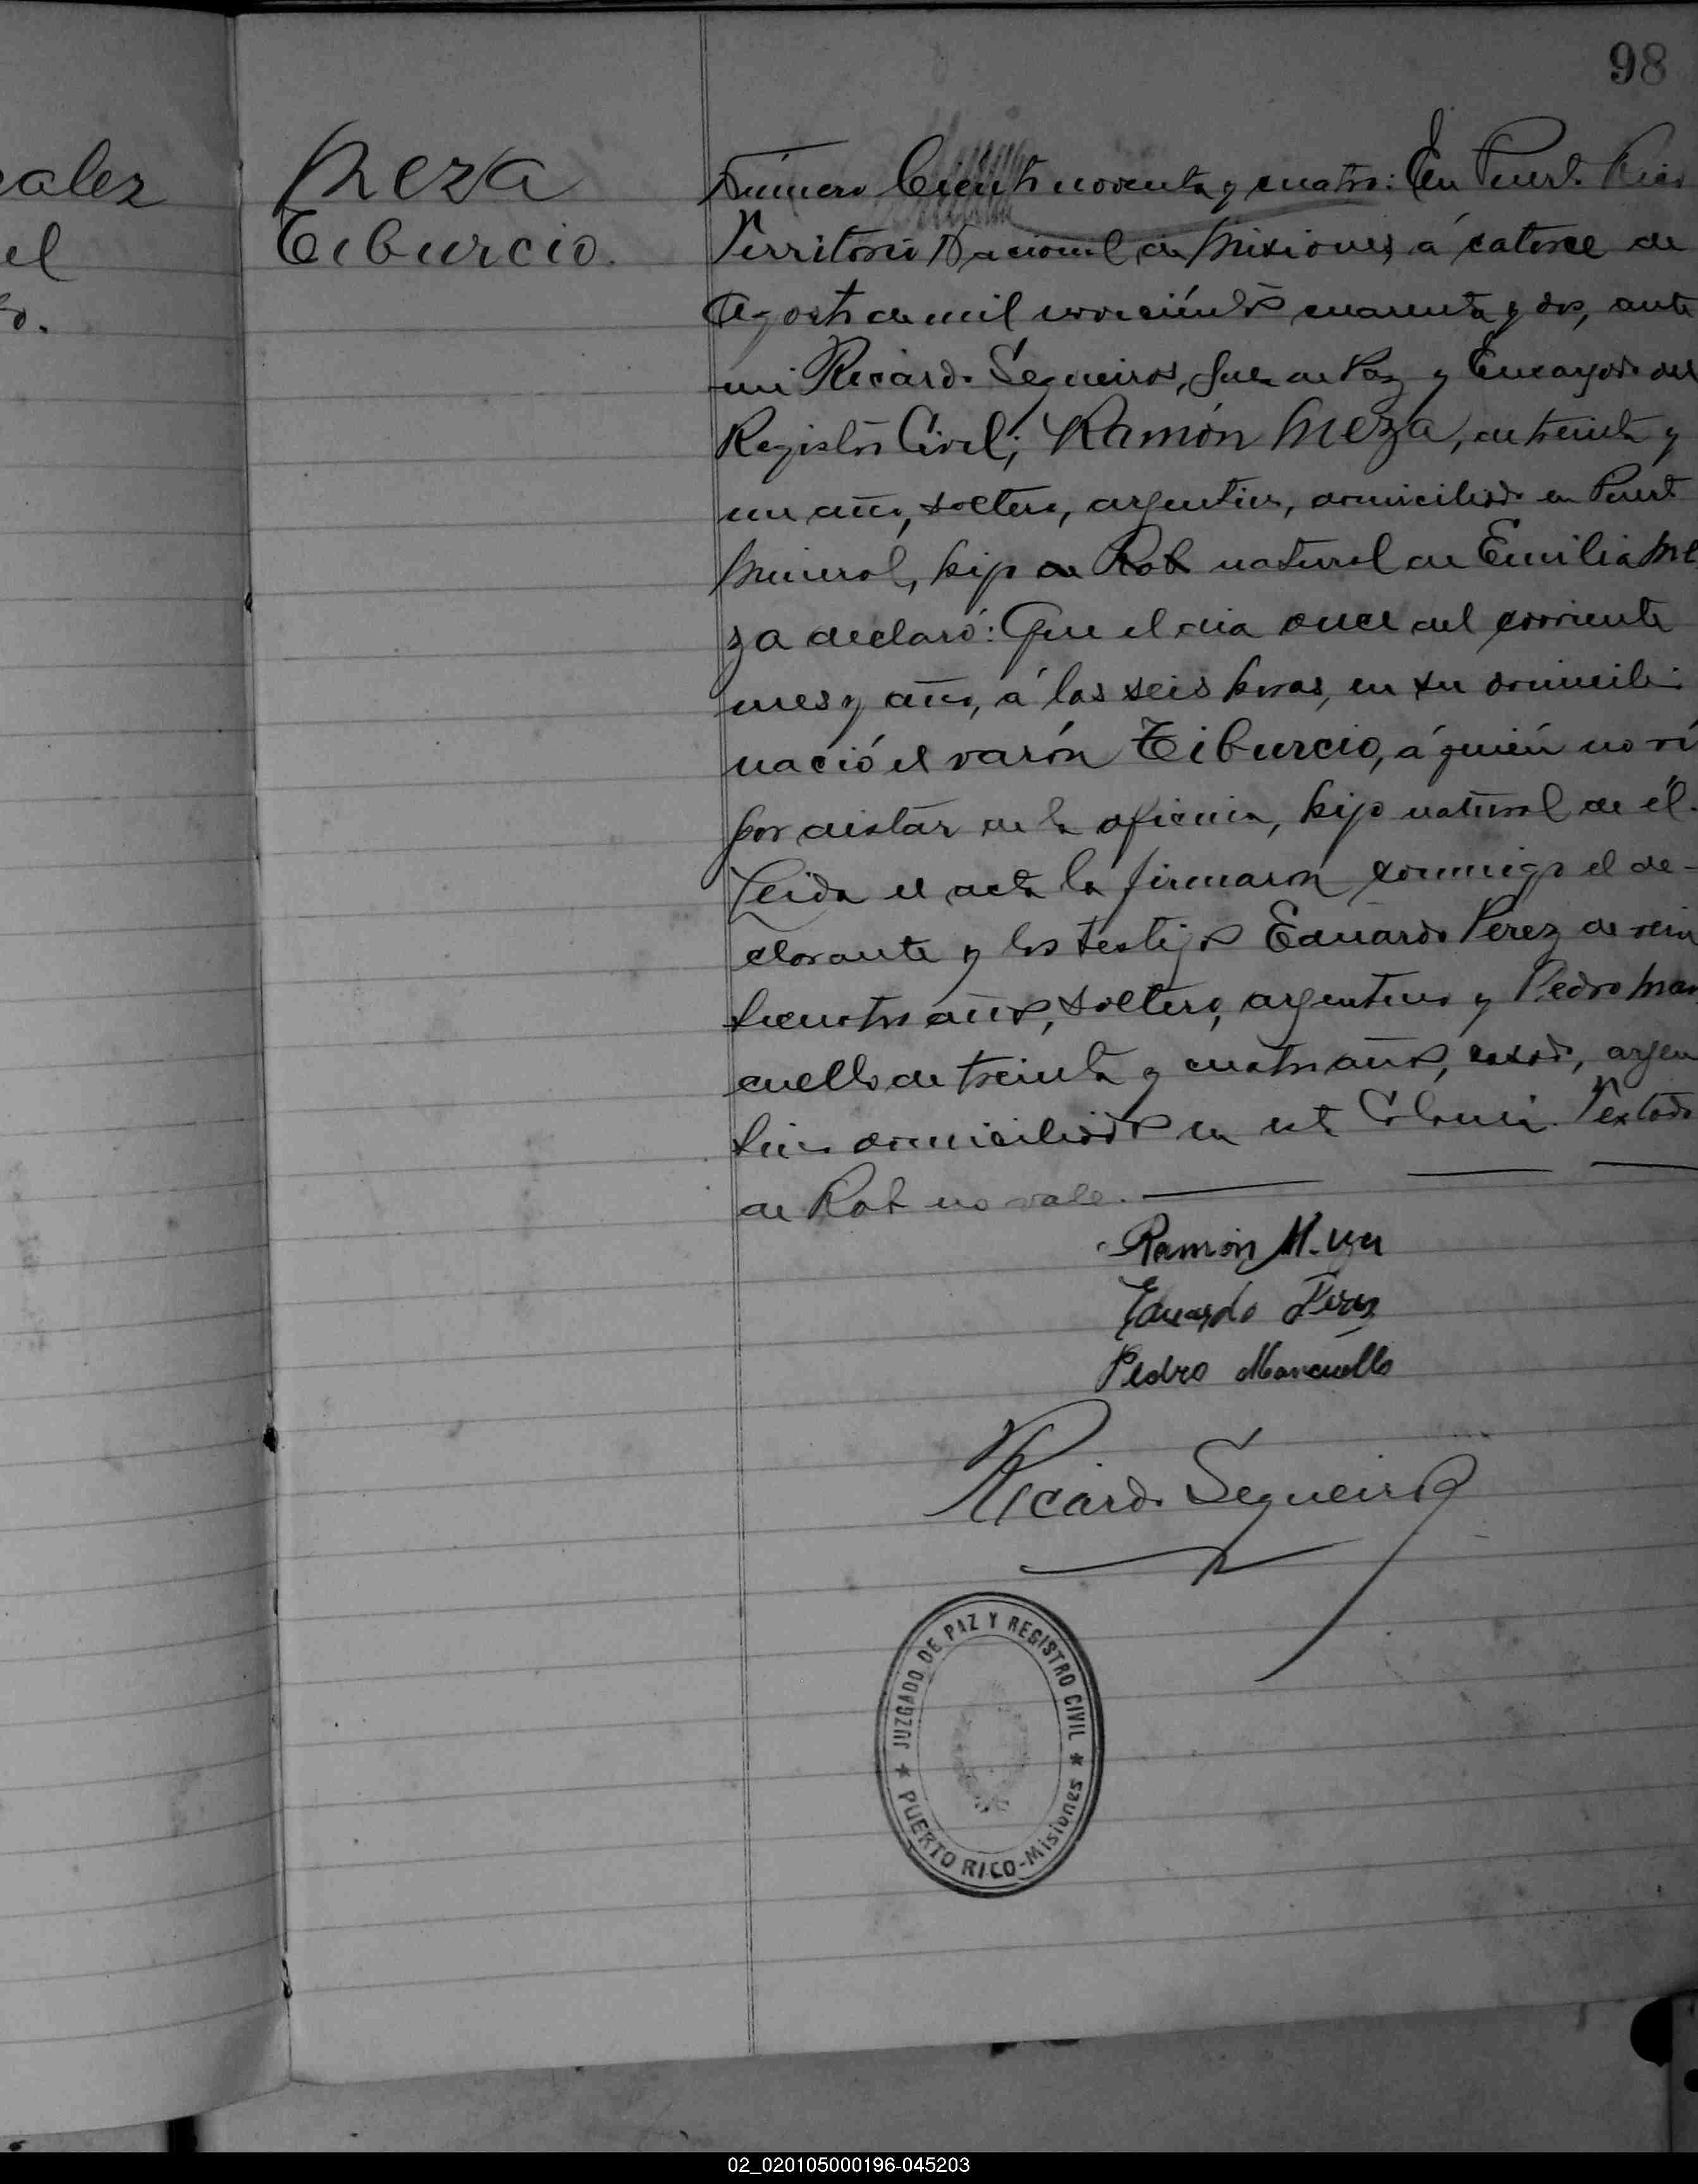 98
calez
el
o.
Meza
Tiburcio.
Número Ciento noventa y cuatro: En Puerto Rico
Territorio Nacional de Misiones, á catorce de
Agosto de mil novecientos cuarenta y dos, ante
mi Ricardo Sequeiros, Juez de Paz y Encargado del
Registro Civil; Ramón Meza, de treinta y
un año, soltero, argentino, domiciliado en Puerto
Mineral, hijo de Rob natural de Emilia Me
za declaró: Que el dia once del corriente
mes y año, á las seis horas, en su domicilio
nació el varón Tiburcio, á quién no ví
por distar de la oficina, hijo natural de él.
Leida el acta la firmaron conmigo el de-
clarante y los testigos Eduardo Perez de vein
ticuatro años, soltero, argentino y Pedro Man
cuello de treinta y cuatro años, casado, argen
tino domiciliados en esta Colonia. Testado
de Rob no vale.
Ramón Meza
Eduardo Perez
Pedro Mancuello
Ricardo Sequeiros
JUZGADO DE PAZ Y REGISTRO CIVIL
PUERTO RICO-Misiones
02_020105000196-045203